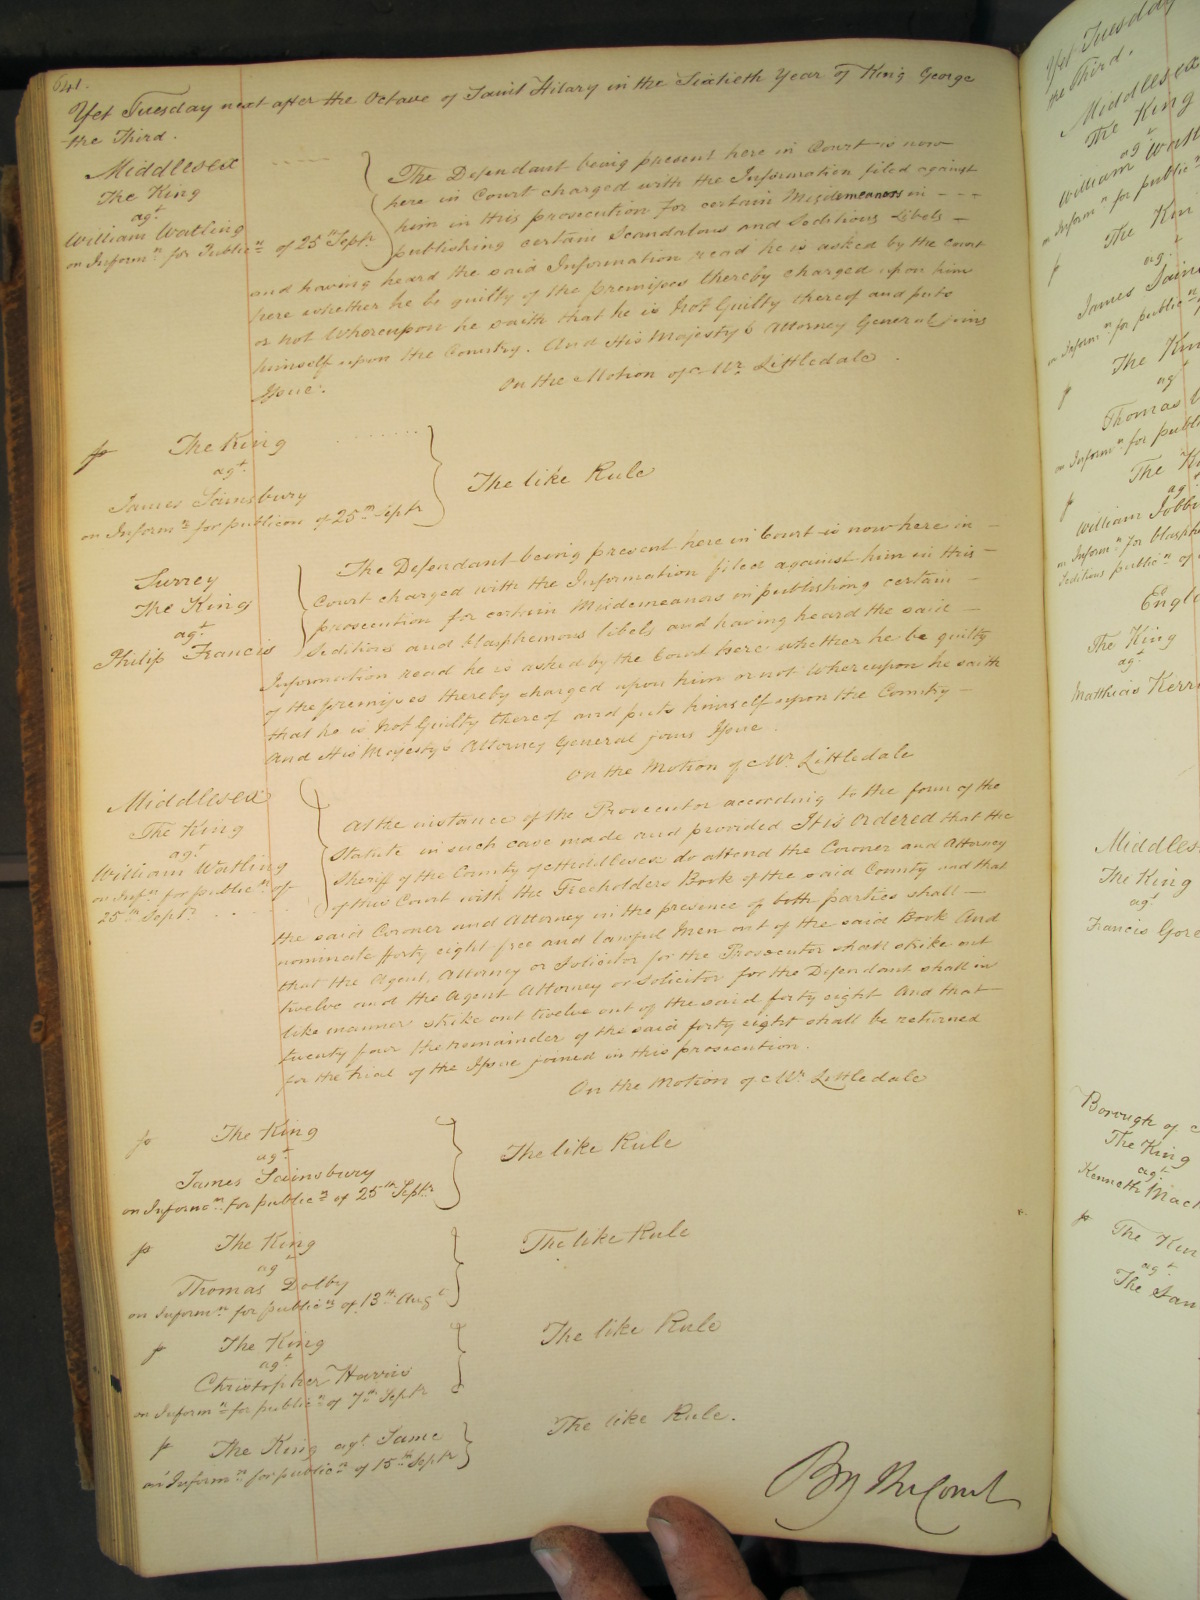 641.
Yet Tuesday next after the Octave of Saint Hilary in the Sixtieth Year of King George
the Third.
Middlesex
The King
agt
William Watling
on Informn for Publicn of 25th Septr
The Defendant being present here in Court is now
here in Court charged with the Information filed against
him in this prosecution for certain Misdemeanors in
publishing certain Scandalous and Seditious Libels
and having heard the said Information read he is asked by the Court
here whether he be guilty of the premisses thereby charged upon him
or not Whereupon he saith that he is Not Guilty thereof and puts
himself upon the Country. And His Majesty's Attorney General joins
Issue.
On the Motion of Mr. Littledale.
The King
agt
James Sainsbury
on Informn for publicon of 25th Septr
The like Rule
Surrey
The King
agt
Philip Francis
The Defendant being present here in Court is now here in
Court charged with the Information filed against him in this
prosecution for certain Misdemeanors in publishing certain
Seditious and blasphemous libels and having heard the said
Information read he is asked by the Court here whether he be guilty
of the premisses thereby charged upon him or not Whereupon he saith
that he is Not Guilty thereof and puts himself upon the Country
And His Majesty's Attorney General joins Issue.
On the Motion of Mr. Littledale
Middlesex
The King
agt
William Watling
on Infn for publicn of
25th Septr
At the instance of the Prosecutor according to the form of the
Statute in such case made and provided It is Ordered that the
Sheriff of the County of Middlesex do attend the Coroner and Attorney
of this Court with the Freeholders Book of the said County and that
the said Coroner and Attorney in the presence of both parties shall
nominate forty eight free and lawful Men out of the said Book And
that the Agent, Attorney or Solicitor for the Prosecutor shall strike out
twelve and the Agent Attorney or Solicitor for the Defendant shall in
like manner strike out twelve out of the said forty eight And that
twenty four the remainder of the said forty eight shall be returned
for the trial of the Issue joined in this prosecution.
On the Motion of Mr. Littledale
The King
agt
James Sainsbury
on Informn for publicn of 25th Septr
The like Rule
The King
agt
Thomas Dolby
on Informn for publicn of 13th Augt
The like Rule
The King
agt
Christopher Harris
on Informn for publicn of 7th Septr
The like Rule
The King agt Same
on Informn for publicn of 15th Septr
The like Rule.
By the Court
Yet Tuesday
the Third.
Middlesex
The King
agt
William Wat
on Informn for public
The Kin
agt
James Sain
on Informn for public
The Kin
agt
Thomas
on Informn for publi
The K
agt
William
on Informn for blasph
Seditious publicn of
Engl
The King
agt
Matthias Kerr
Middles
The King
agt
Francis Gore
Borough of
The King
agt
Kenneth Mac
The Kin
agt
The Sam